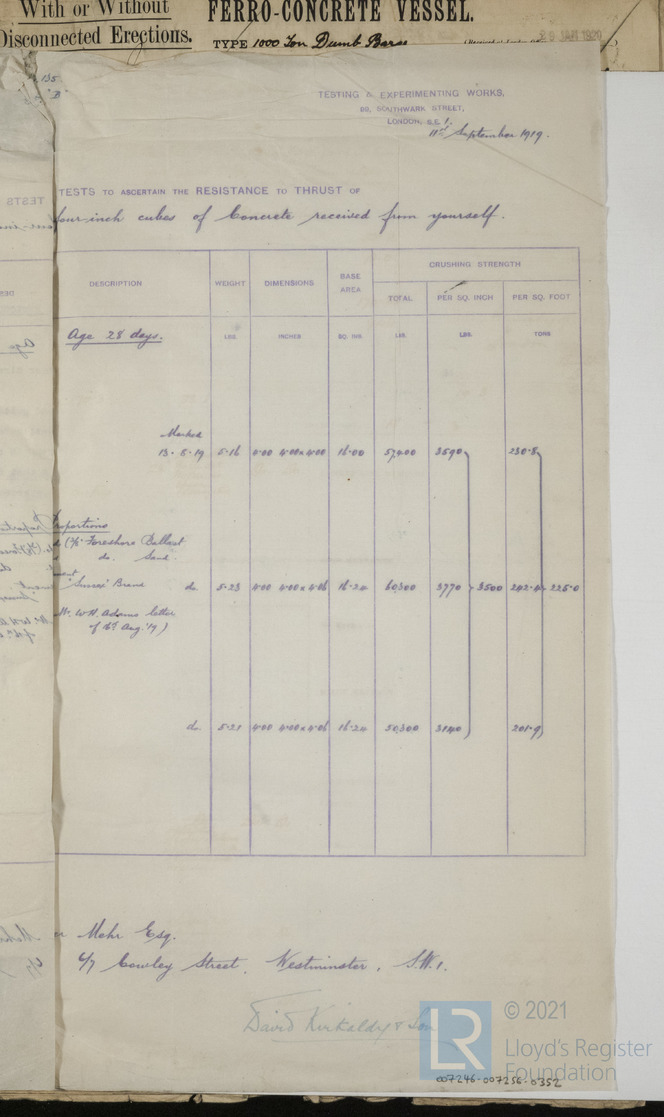 With or Without
Disconnected Erections.
FERRO-CONCRETE VESSEL.
TYPE 1000 Ton Dumb Barge
20 JAN 1920
TESTING & EXPERIMENTING WORKS,
99, SOUTHWARK STREET,
LONDON, S.E. 1.
11th September 1919.
TESTS TO ASCERTAIN THE RESISTANCE TO THRUST OF
four-inch cubes of Concrete received from yourself.
DESCRIPTION WEIGHT DIMENSIONS BASE AREA CRUSHING STRENGTH
TOTAL PER SQ. INCH PER SQ. FOOT
Age 28 days. LBS. INCHES SQ. INS. LBS. LBS. TONS
Marked
13. 8. 19 5.16 4.00 4.00 x 4.00 16.00 57,400 3590 230.8
Proportions
(3/8" Foreshore Ballast
do. Sand.
"Sussex" Brand do. 5.23 4.00 4.00 x 4.06 16.24 60,300 3770 3500 242.4 225.0
Mr. W.H. Adams letter
of 16th Aug. '19)
do. 5.21 4.00 4.00 x 4.06 16.24 50,300 3140 201.9
Mehr Esq.
6/7 Cowley Street, Westminster, S.W.1.
David Kirkaldy & Son
© 2021
LR
Lloyd's Register
Foundation
007246-007256-0352